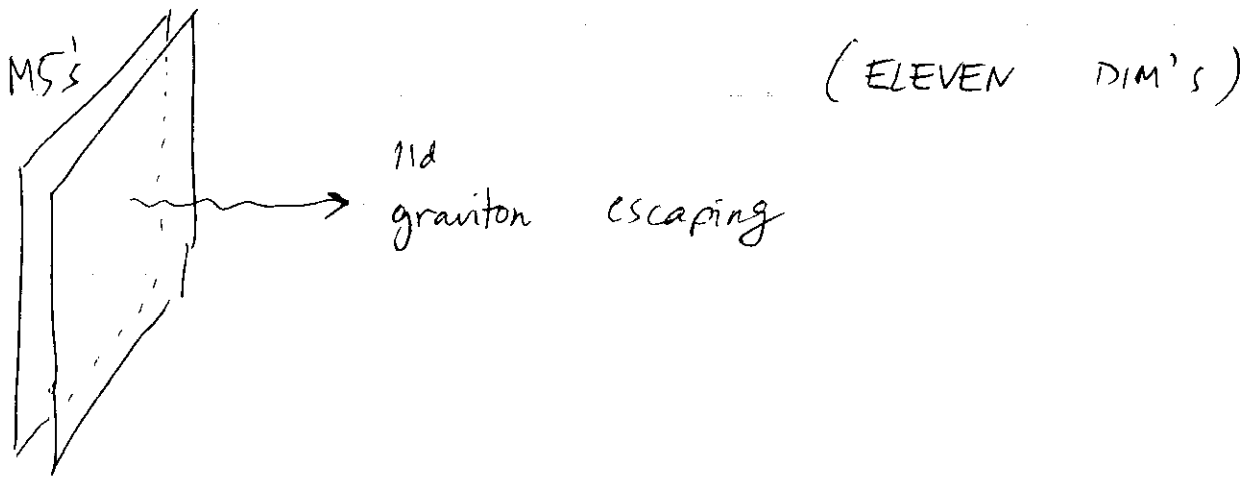 M5's
(ELEVEN DIM's)
11d
graviton escaping